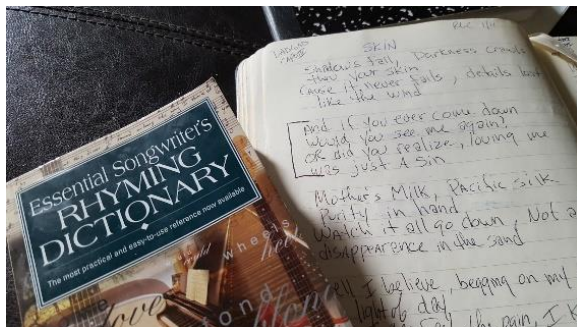 Essential Songwriter's
RHYMING
DICTIONARY
The most practical and easy-to-use reference now available
wheels
love
SKIN
Shadows fall, Darkness crawls
thru your skin
Cause it never fails, details lost
like the wind
And if you ever come down
would you see me again?
OR did you realize, loving me
was just A Sin
Mother's Milk, Pacific Silk
Purity in hand
Watch it all go down, Not a
disappearence in the sand
I believe, begging on my
day
the pain, I